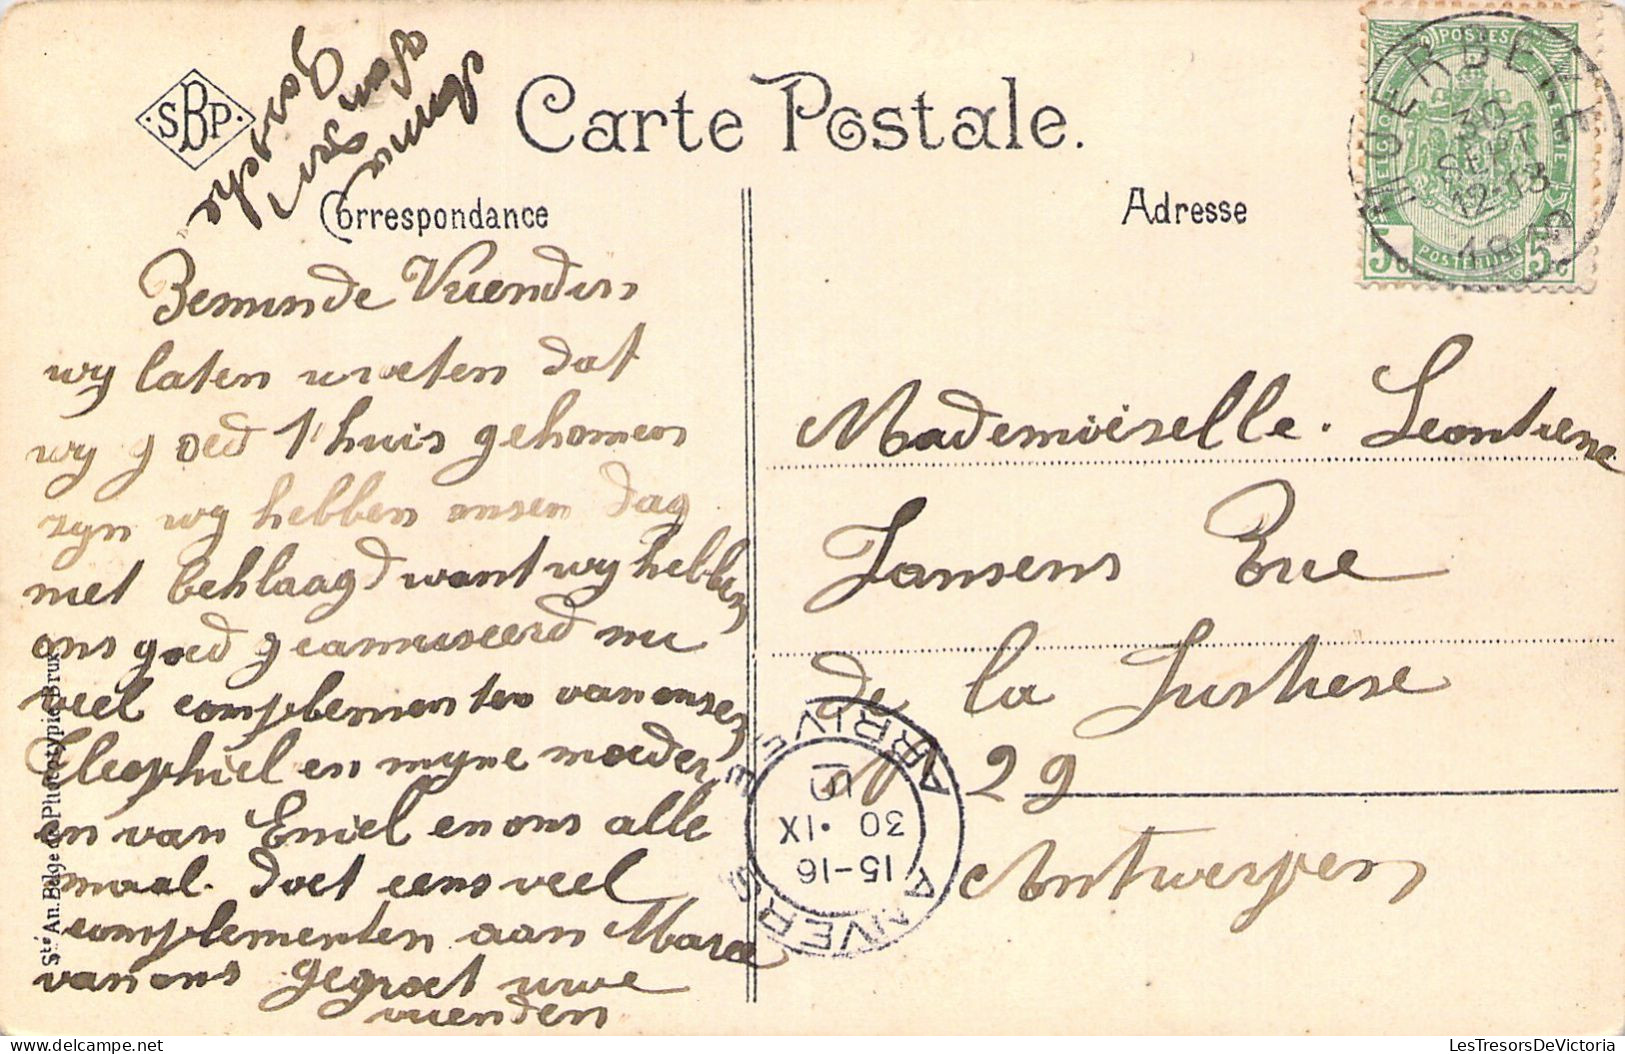 SBP
Carte Postale.
Correspondance
Adresse
Beminde Vrienden
wy laten weten dat
wy goed t'huis gekomen
zyn wy hebben onsen dag
niet beklaagd want wy hebben
ons goed geamuseerd nu
veel complementen van onsen
Theophiel en myne moeder
en van Emiel en ons alle
maal. doet eens veel
complementen aan Marie
van ons gegroet uwe
vrienden
Mademoiselle. Leontiene
Jansens Rue
de la Justiese
N 29
Antwerpen
MOERBEKE
30
SEPT
12-13
POSTES
BELGIQUE
BELGIE
POSTERIJEN
5c 5c
ANVERS ARRIVEE
15-16
30 · IX
Sté An. Belge de Phototypie Brux
LesTresorsDeVictoria.com